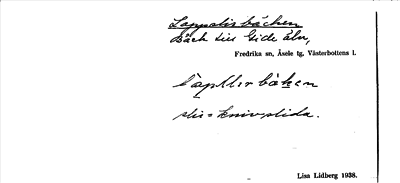 Lappslisbäcken
Bäck till Gide älv,
Fredrika sn, Åsele tg, Västerbottens l.
slis = knivslida.
Lisa Lidberg 1938.